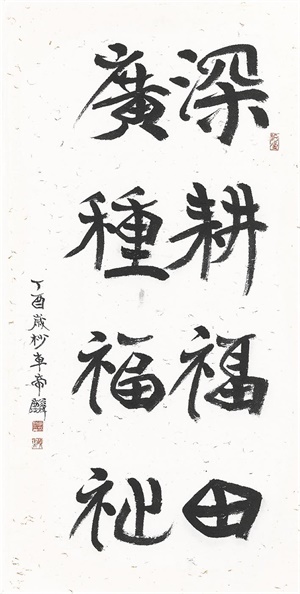 深耕福田
廣種福祉
丁酉歲杪車帝麟